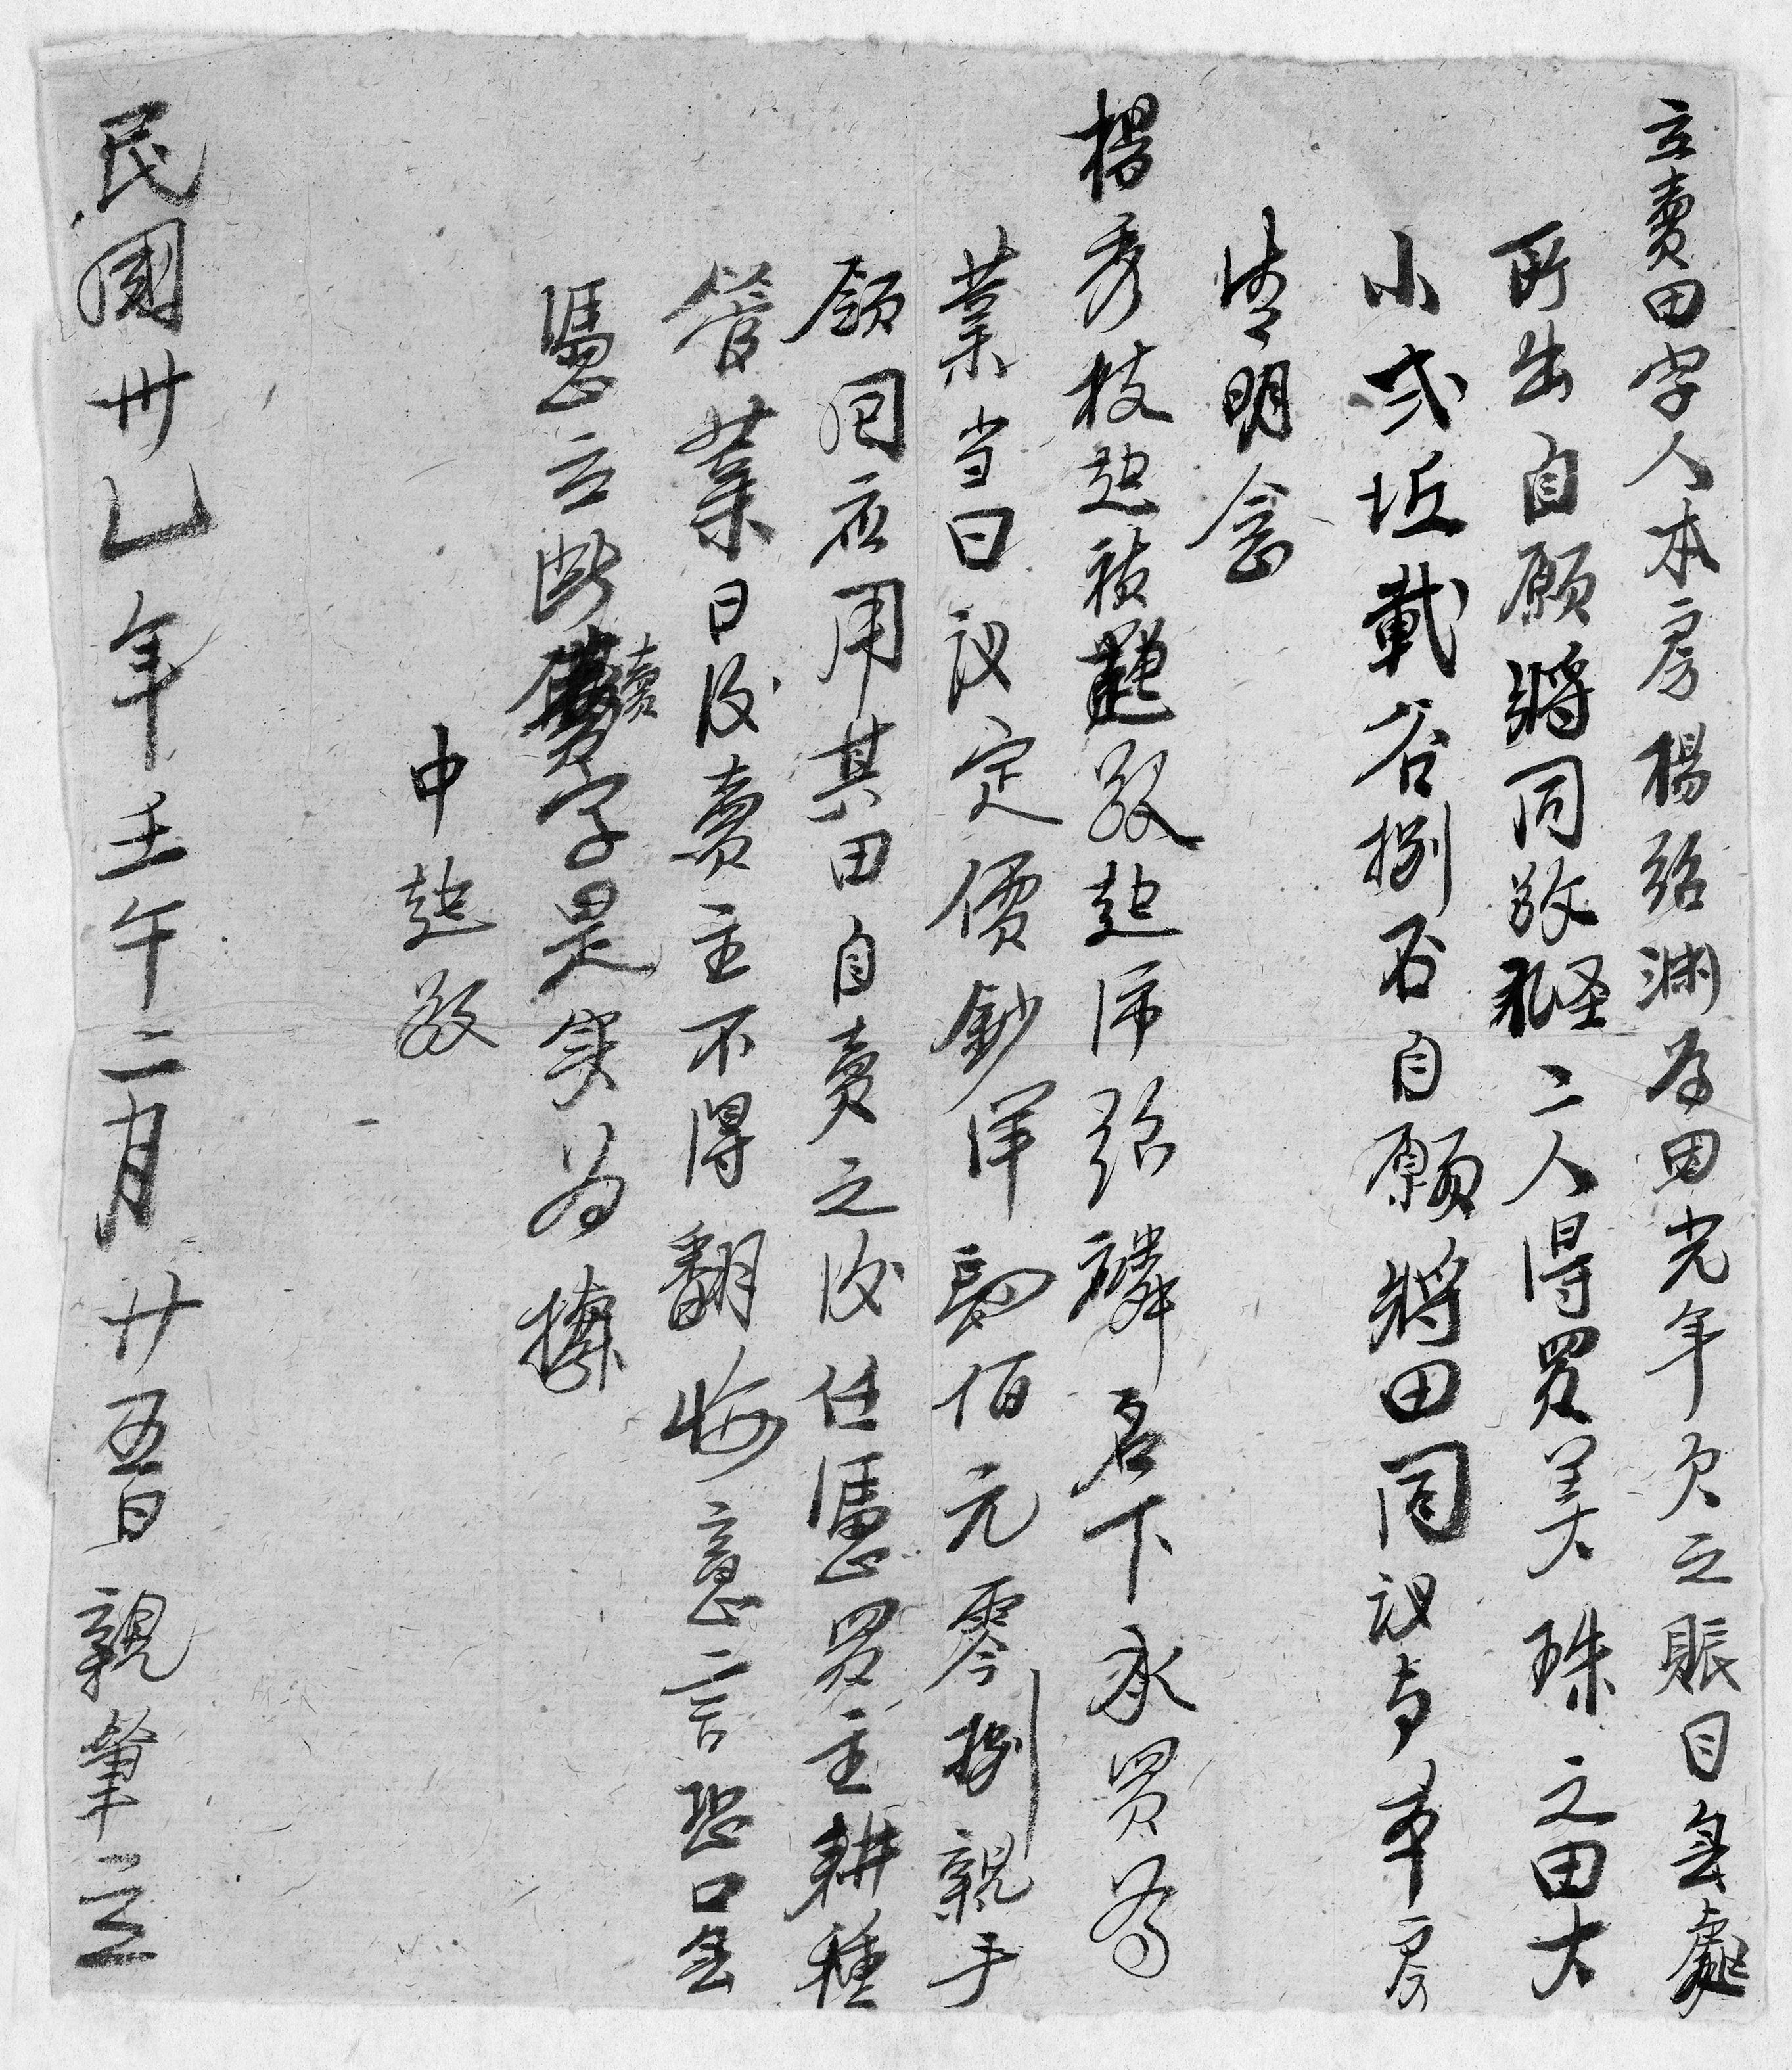 立賣田字人本房楊紹渊为田光年欠之賬目無處
所出自願將同啟經二人得買美珠之田大
小弍坵載谷捌石自願將田同议与本房
清明會
楊秀枝起禎起啟起沛紹麟名下永買為
業当日议定價鈔洋四佰元零捌親手
領回应用其田自賣之後任憑買主耕種
管業日後賣主不得翻悔意言恐口無
憑立断賣字是实为據
中起啟
民國卅乚年壬午二月廿五日親筆立